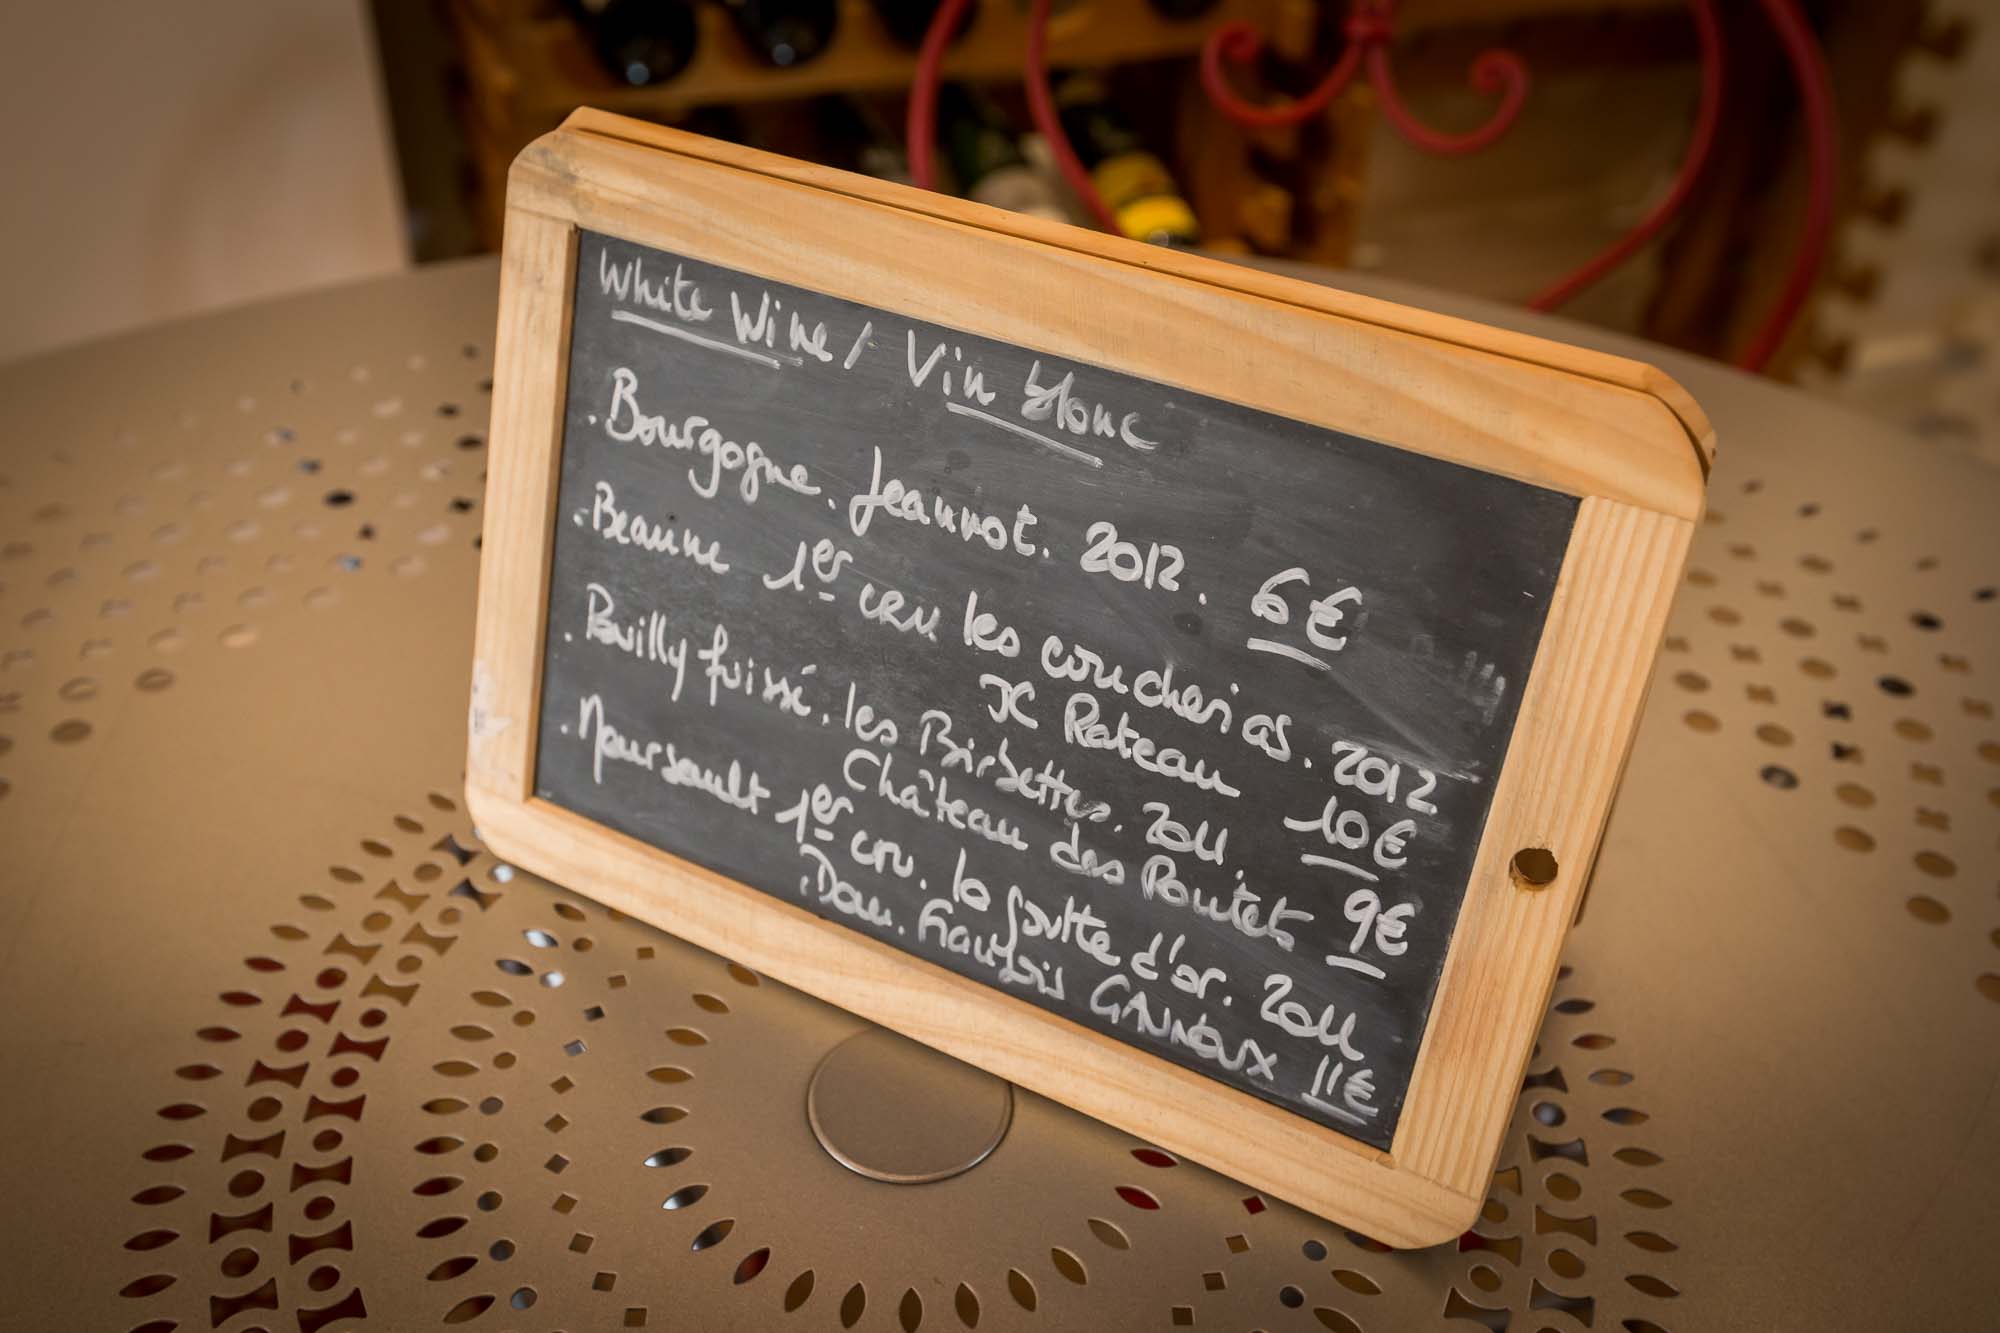 White Wine / Vin blanc
. Bourgogne. Jeannot. 2012. 6€
. Beaune 1er cru les coucherias. 2012
JC Rateau 10€
. Pouilly fuissé. les Birbettes. 2011.
Château des Rontets 9€
. Meursault 1er cru. la goutte d'or. 2011
. Dom. François GAUNOUX 11€